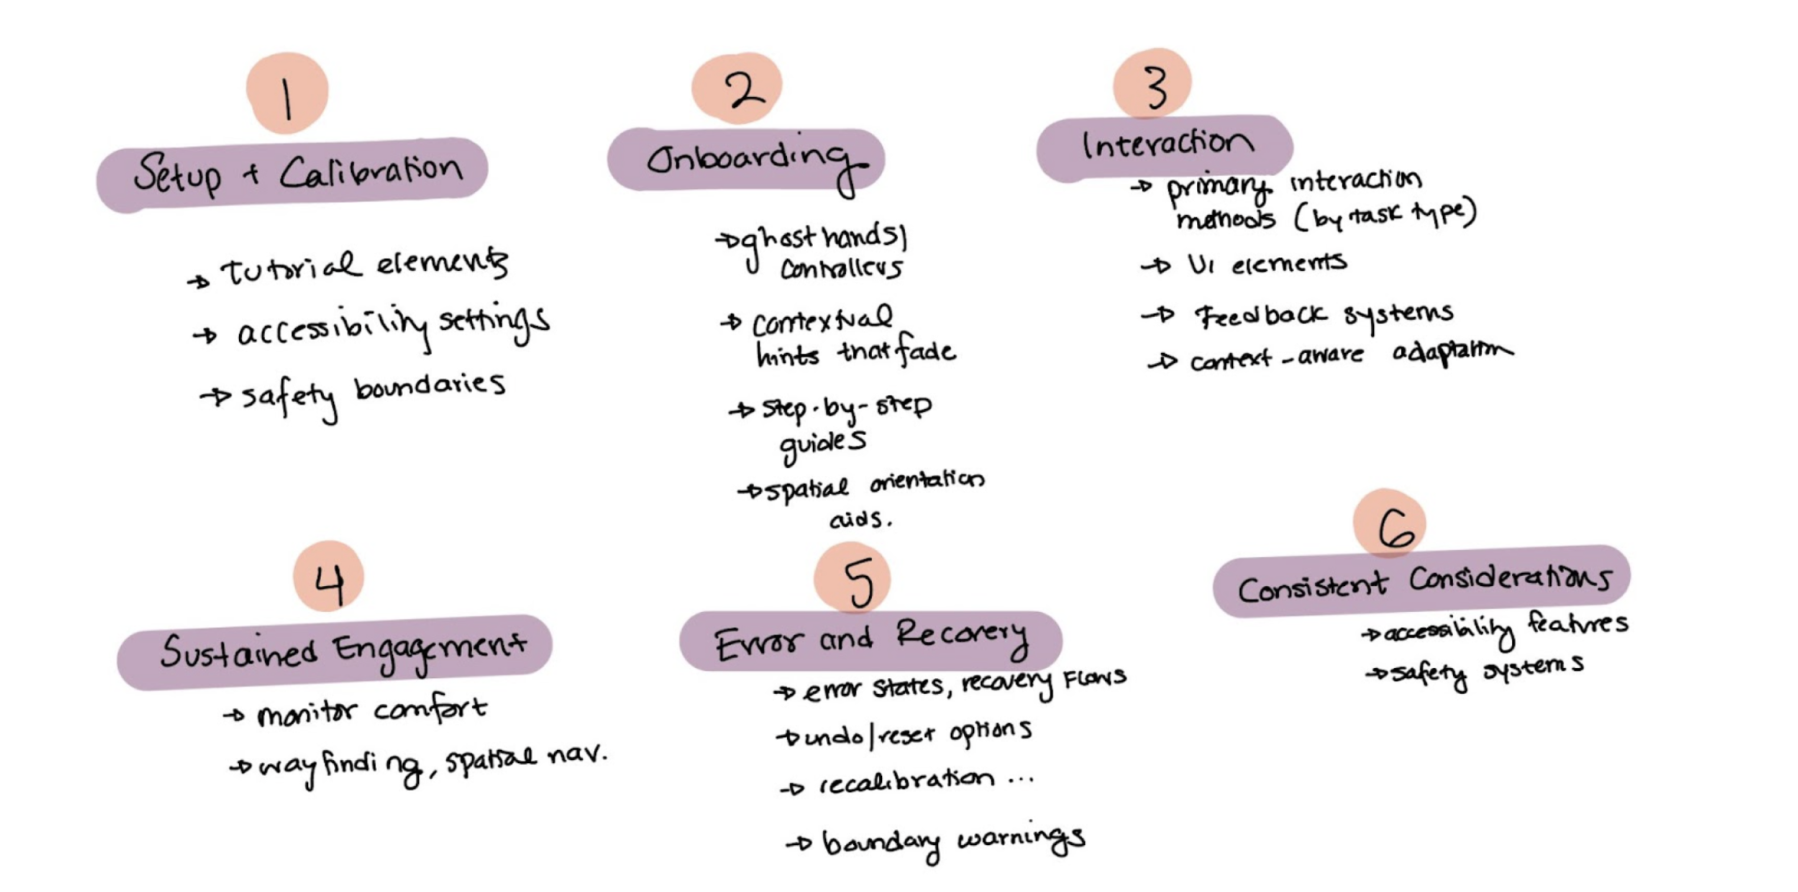 1
Setup + Calibration
→ tutorial elements
→ accessibility settings
→ safety boundaries
2
Onboarding
→ ghost hands/
controllers
→ contextual
hints that fade
→ step-by-step
guides
→ spatial orientation
aids.
3
Interaction
→ primary interaction
methods (by task type)
→ UI elements
→ Feedback systems
→ context-aware adaptation
4
Sustained Engagement
→ monitor comfort
→ wayfinding, spatial nav.
5
Error and Recovery
→ error states, recovery flows
→ undo/reset options
→ recalibration ...
→ boundary warnings
6
Consistent Considerations
→ accessibility features
→ safety systems